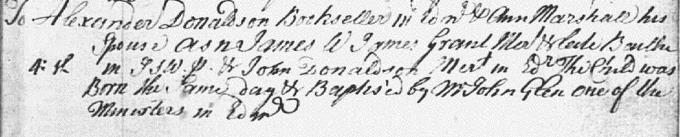 To Alexander Donaldson Bookseller in Edr & Ann Marshall his
Spouse a s n James W James Grant Mert & late Baillie
4: th in & John Donaldson Mert in Edr The Child was
Born the same day & Baptised by Mr John Glen one of the
Ministers in Edr